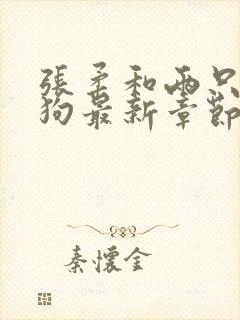 張柔和兩只
狗最新章節
秦懷金